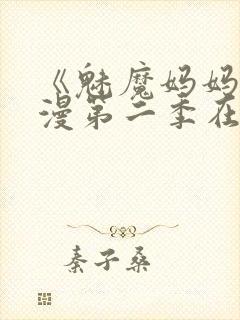 《魅魔妈妈
漫第二季在
秦子桑